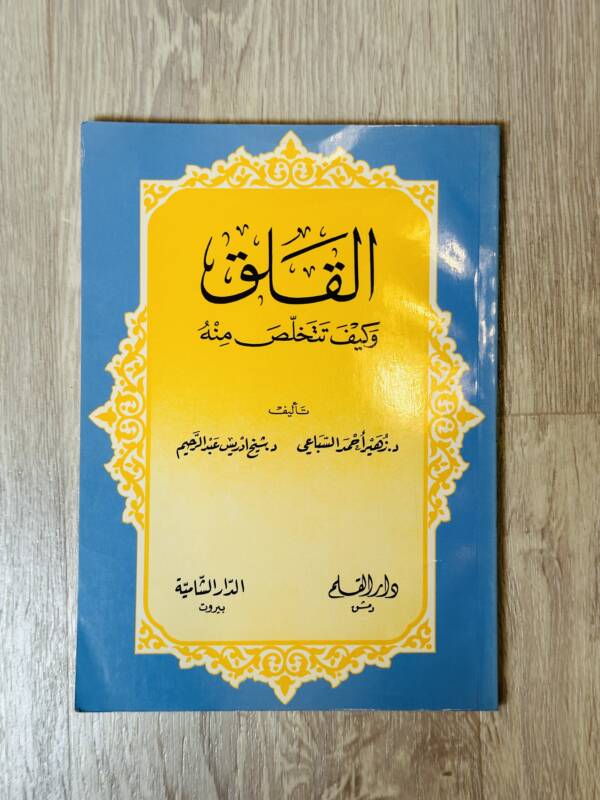 القلق
وكيف تتخلّص منه
تأليف
د. زهير أحمد السباعي د. شيخ ادريس عبد الرحيم
دار القلم الدّار الشّاميّة
دمشق بيروت